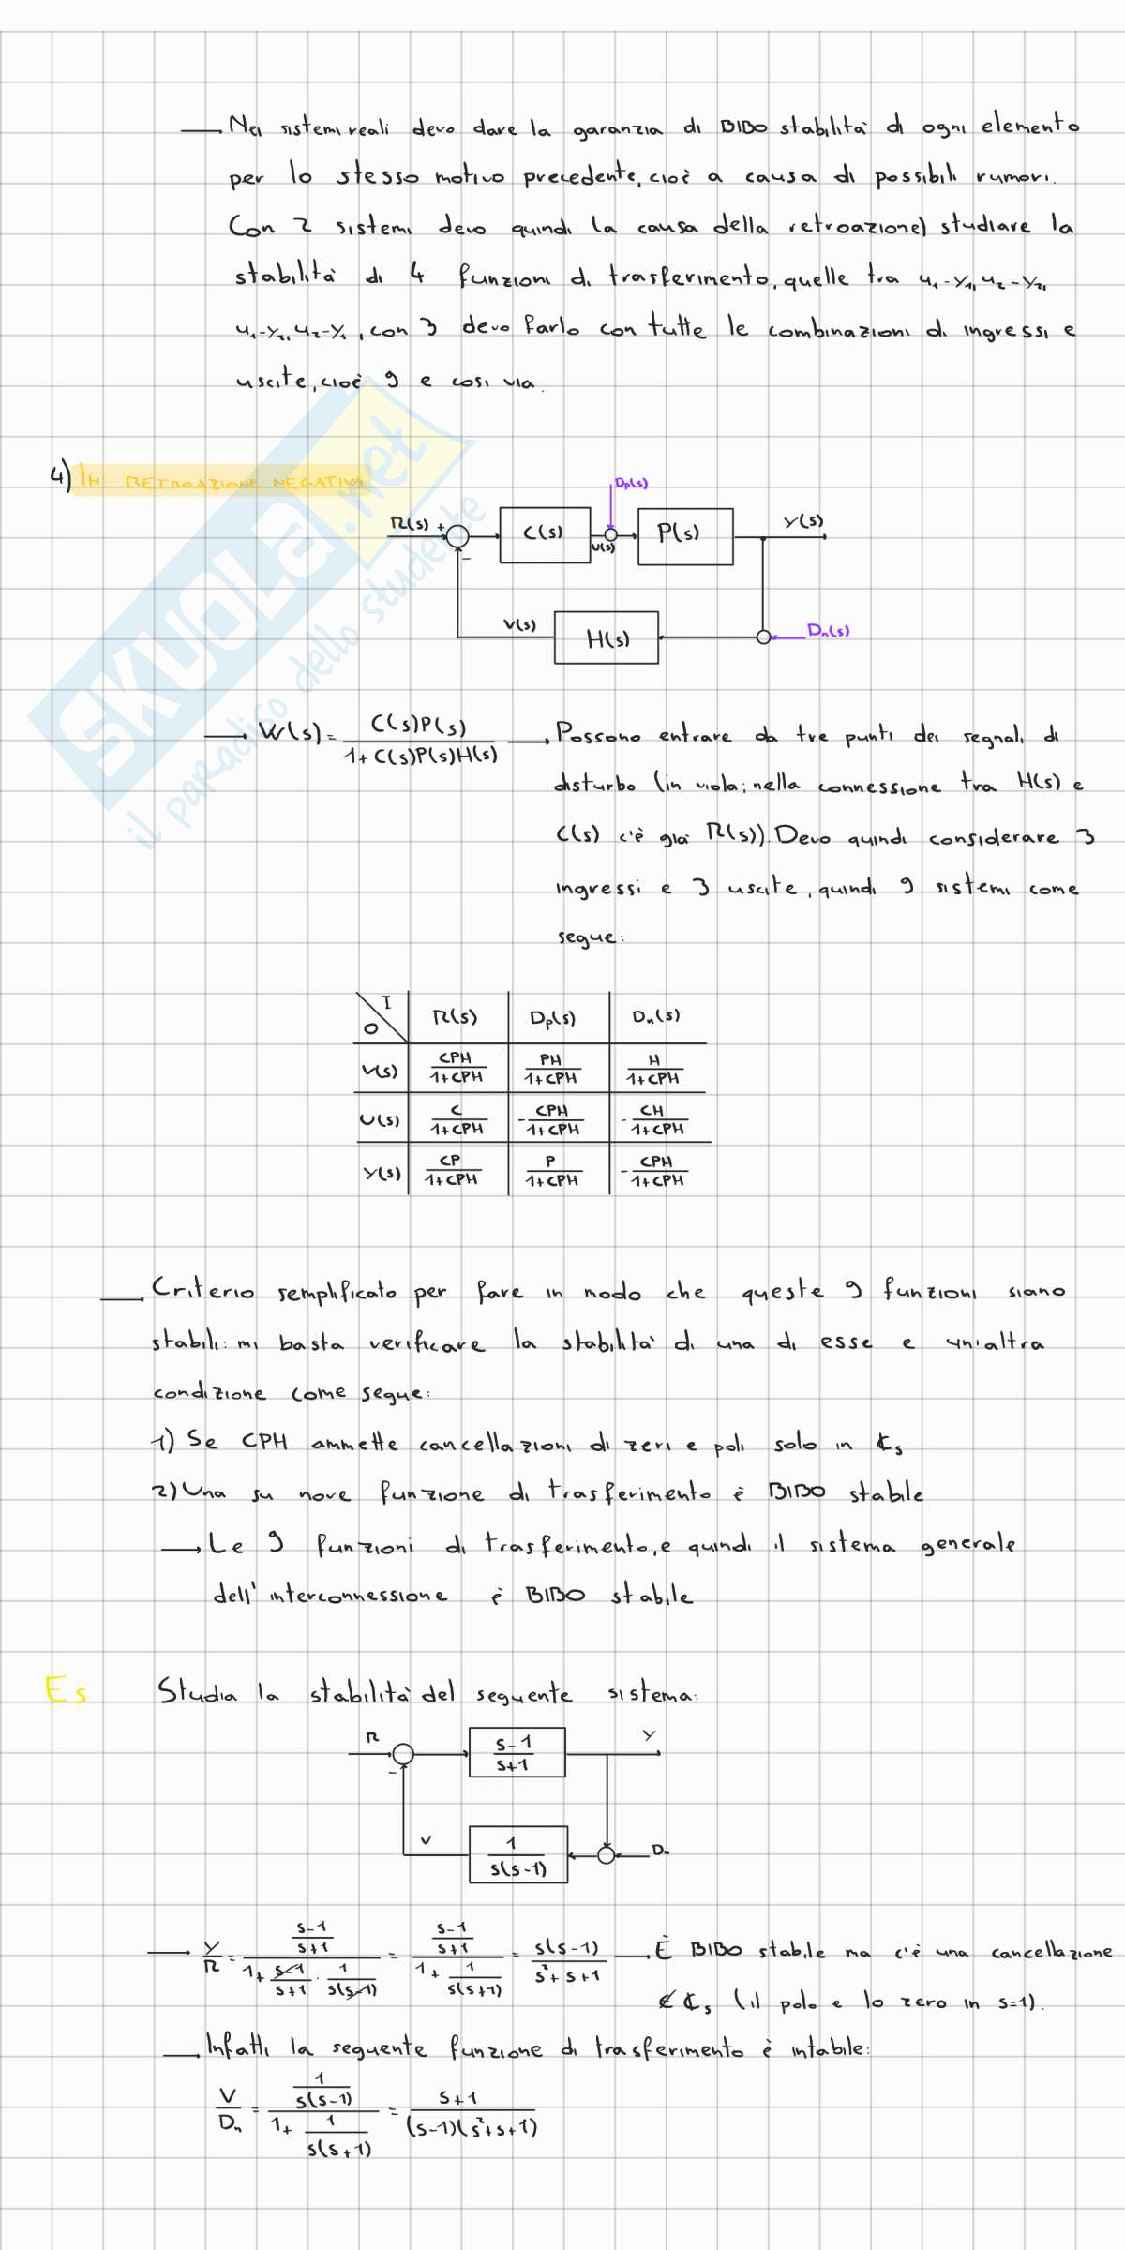 Nei sistemi reali devo dare la garanzia di BIBO stabilità di ogni elemento
per lo stesso motivo precedente, cioè a causa di possibili rumori.
Con 2 sistemi devo quindi (a causa della retroazione) studiare la
stabilità di 4 funzioni di trasferimento, quelle tra u₁-y₁, u₂-y₂,
u₁-y₂, u₂-y₁, con 3 devo farlo con tutte le combinazioni di ingressi e
uscite, cioè 9 e così via.
4) IN RETROAZIONE NEGATIVA
Dp(s)
R(s) + C(s) U(s) P(s) Y(s)
-
V(s) H(s) Dn(s)
W(s) = C(s)P(s) / 1+C(s)P(s)H(s) Possono entrare da tre punti dei segnali di
disturbo (in viola; nella connessione tra H(s) e
C(s) c'è già R(s)). Devo quindi considerare 3
ingressi e 3 uscite, quindi 9 sistemi come
segue:
I
O R(s) Dp(s) Dn(s)
V(s) CPH/1+CPH PH/1+CPH H/1+CPH
U(s) C/1+CPH -CPH/1+CPH -CH/1+CPH
Y(s) CP/1+CPH P/1+CPH -CPH/1+CPH
Criterio semplificato per fare in modo che queste 9 funzioni siano
stabili: mi basta verificare la stabilità di una di esse e un'altra
condizione come segue:
1) Se CPH ammette cancellazioni di zeri e poli solo in ℂs
2) Una su nove funzione di trasferimento è BIBO stabile
Le 9 funzioni di trasferimento, e quindi il sistema generale
dell'interconnessione è BIBO stabile
Es Studia la stabilità del seguente sistema:
R s-1/s+1 Y
-
V 1/s(s-1) D.
Y/R = (s-1/s+1) / (1+ s-1/s+1 · 1/s(s-1)) = (s-1/s+1) / (1+ 1/s(s+1)) = s(s-1)/s²+s+1 È BIBO stabile ma c'è una cancellazione
∉ ℂs (il polo e lo zero in s=1).
Infatti la seguente funzione di trasferimento è intabile:
V/Dn = (1/s(s-1)) / (1+ 1/s(s+1)) = s+1/(s-1)(s²+s+1)
SKUOLA.net
il paradiso dello studente